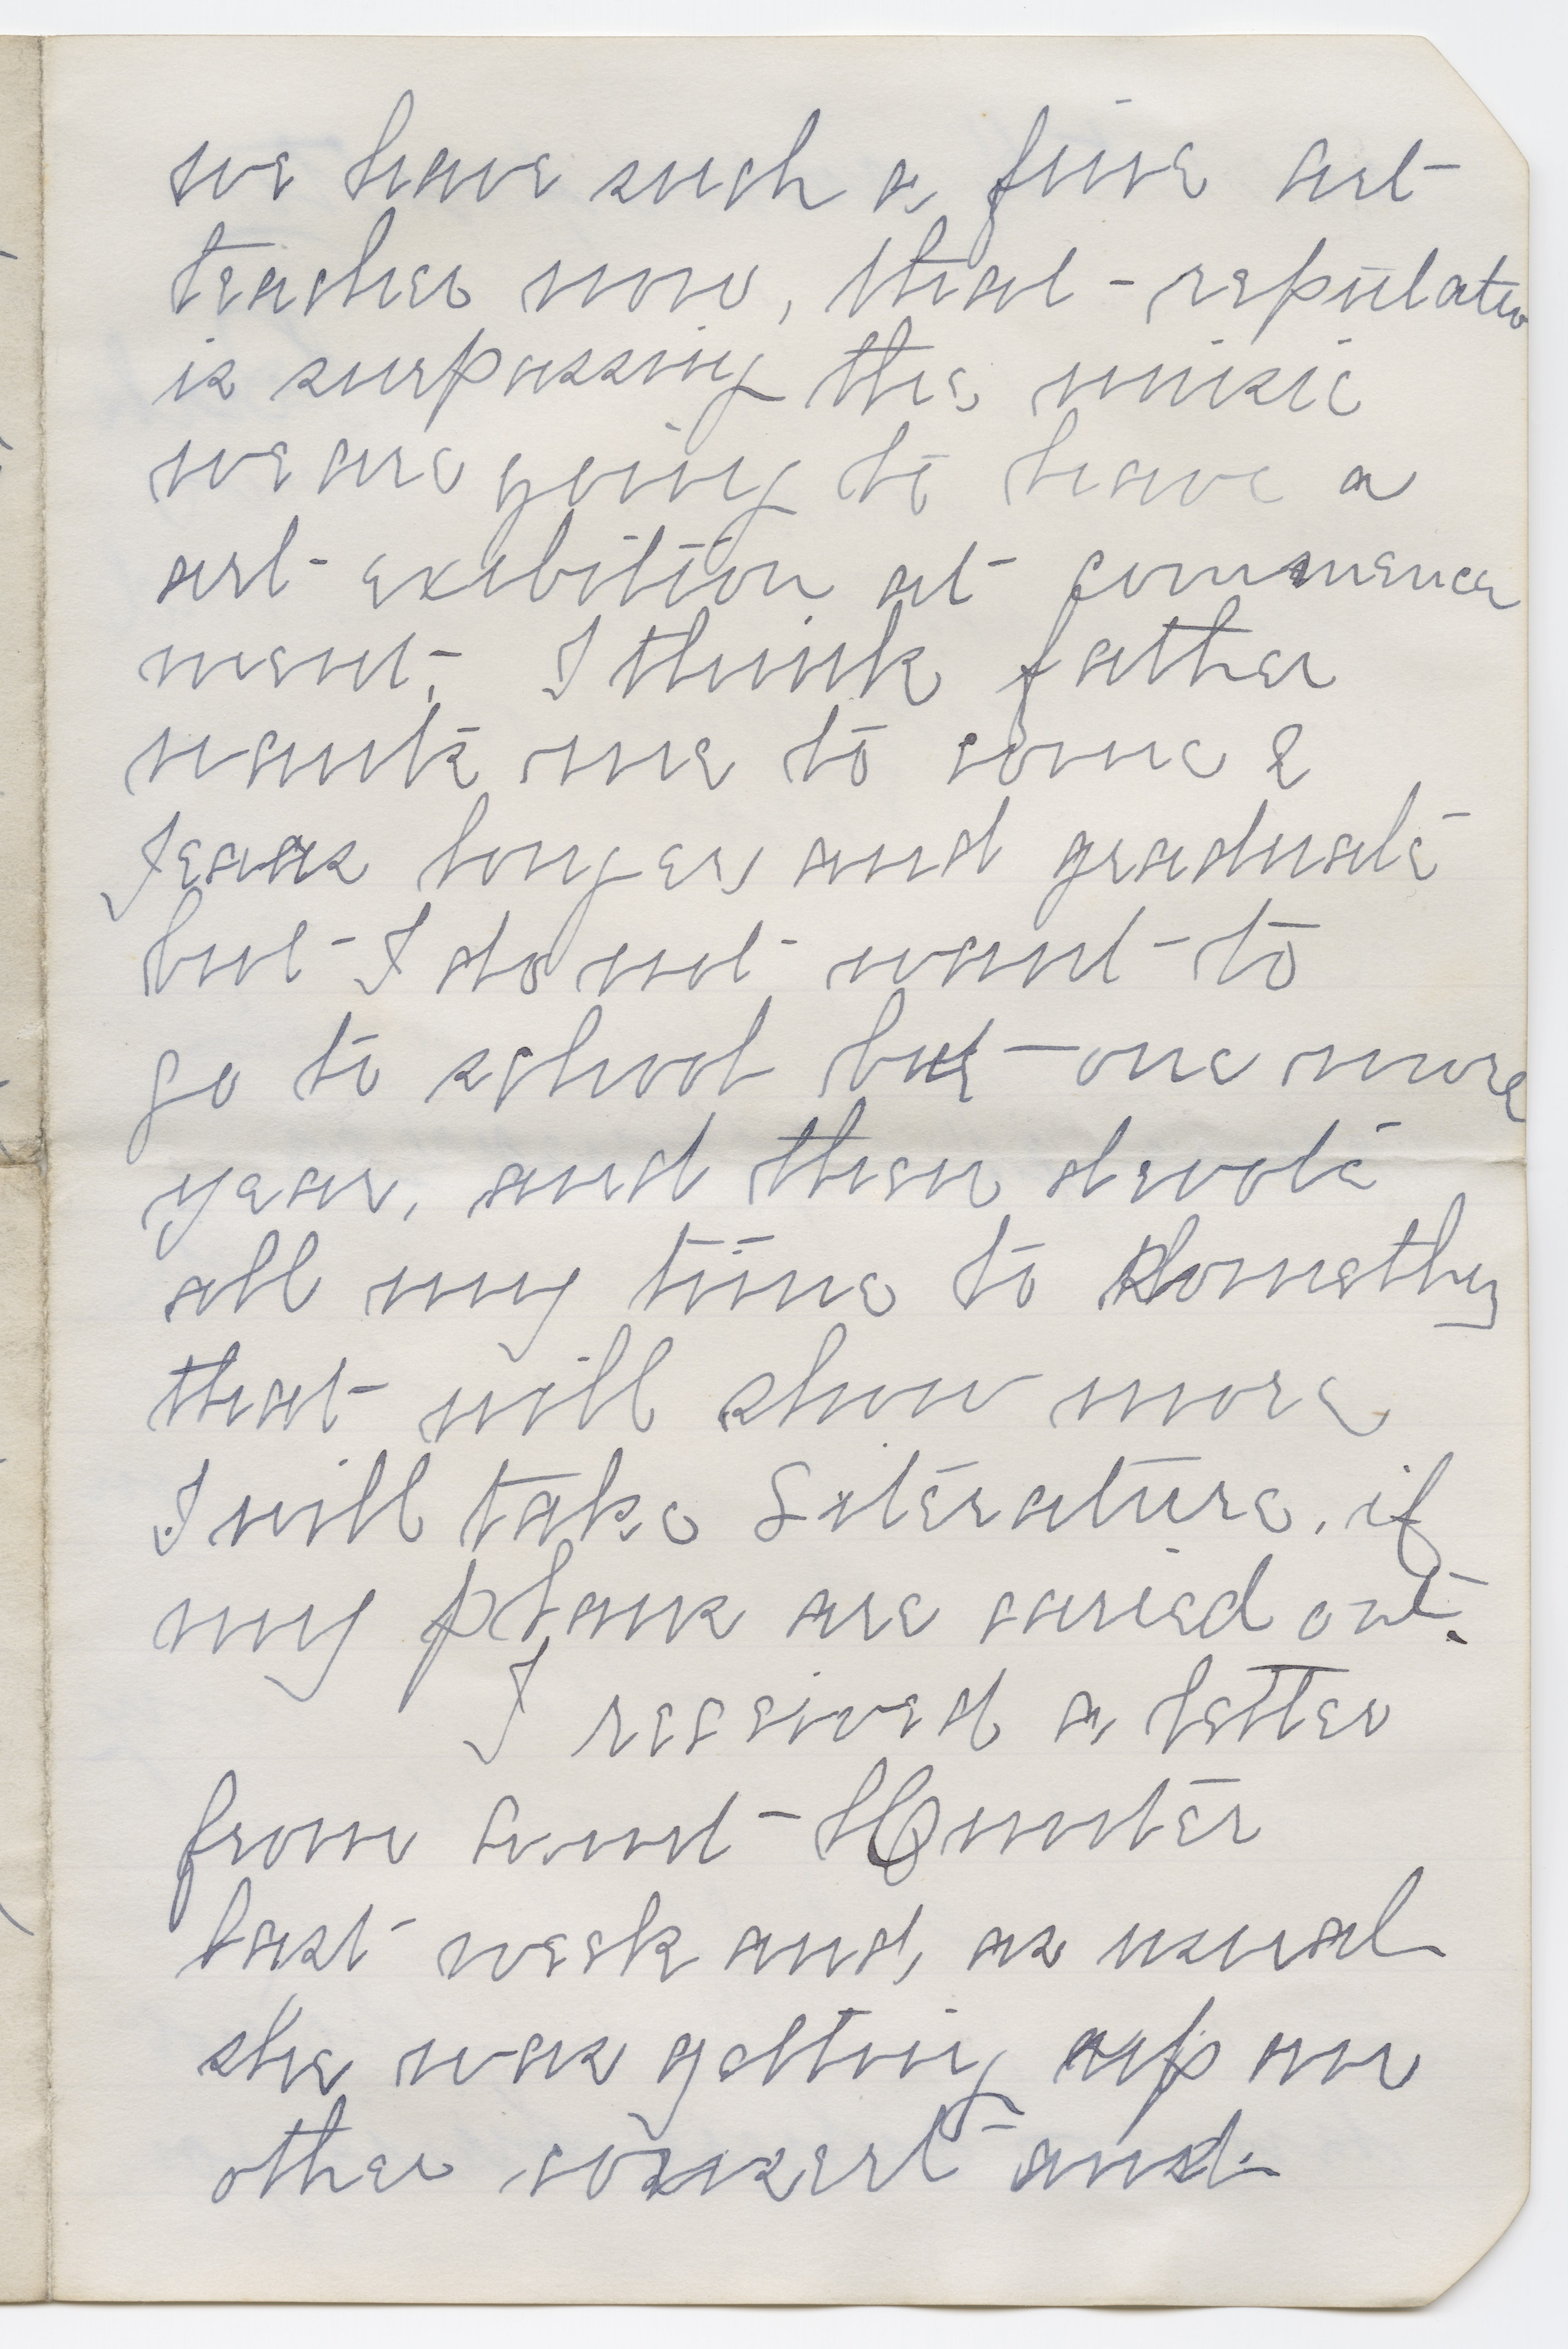 we have such a fine art
teacher now, that reputatio
is surpassing the music
we are going to have a
art exibition at commence
ment. I think father
wants me to come 2
years longer and graduate
but I do not want to
go to school but one more
year, and then devote
all my time to somethg
that will show more
I will take Literature, if
my plans are caried out.
I received a letter
from Aunt Hunter
last week and, as usual
she was getting up an
other concert and